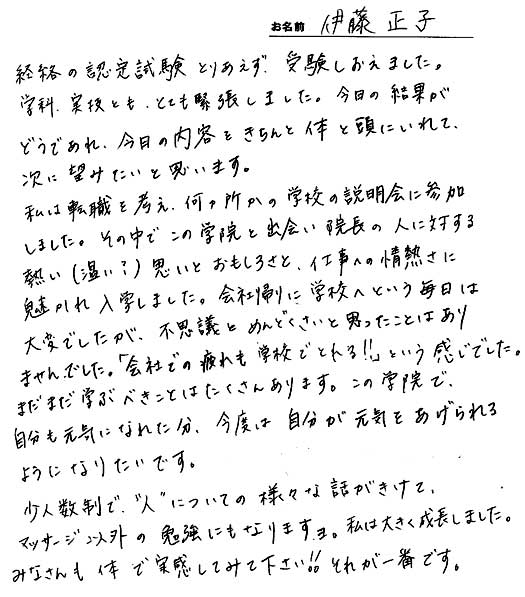 お名前 伊藤 正子
経絡の認定試験 とりあえず、受験しおえました。
学科、実技とも、とても緊張しました。今日の結果が
どうであれ、今日の内容をきちんと体と頭にいれて、
次に望みたいと思います。
私は転職を考え、何ヶ所かの学校の説明会に参加
しました。その中でこの学院と出会い院長の人に対する
熱い(温い?)思いとおもしろさと、仕事への情熱さに
魅かれ入学しました。会社帰りに学校へという毎日は
大変でしたが、不思議とめんどくさいと思ったことはあり
ませんでした。「会社での疲れも学校でとれる!!」という感じでした。
まだまだ学ぶべきことはたくさんあります。この学院で、
自分も元気になれた分、今度は自分が元気をあげられる
ようになりたいです。
少人数制で、"人"についての様々な話がきけて、
マッサージ以外の勉強にもなりますヨ。私は大きく成長しました。
みなさんも体で実感してみて下さい!!それが一番です。